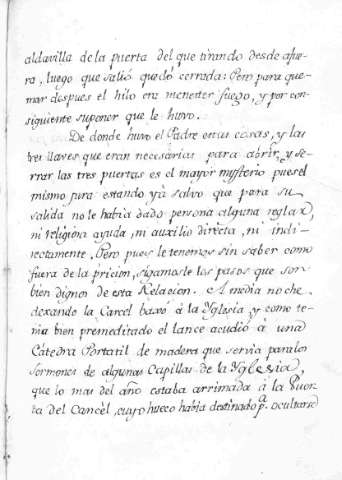 aldavilla de la puerta del que tirando desde afue-
ra, luego que salió quedó cerrada: Pero para que-
mar despues el hilo era menester fuego, y por con-
siguiente suponer que le huvo.
De donde huvo el Padre estas cosas, y las
tres llaves que eran necesarias para abrir, y se-
rrar las tres puertas es el mayor mysterio pues el
mismo jura estando yà salvo que para su
salida no le había dado persona alguna reglar,
ni religión ayuda, ni auxilio directa, ni indi-
rectamente. Pero pues le tenemos sin saber como
fuera de la pricion, sigamosle los pasos que son
bien dignos de esta Relacion. A media noche
dexando la Carcel baxó à la Yglesia y como te-
nia bien premeditado el lance acudió à una
Cátedra Portatil de madera que servia para los
Sermones de algunas Capillas de la Yglesia,
que lo mas del año estaba arrimada à la Puer-
ta del Cancèl, cuyo hueco habia destinado pa. ocultarse